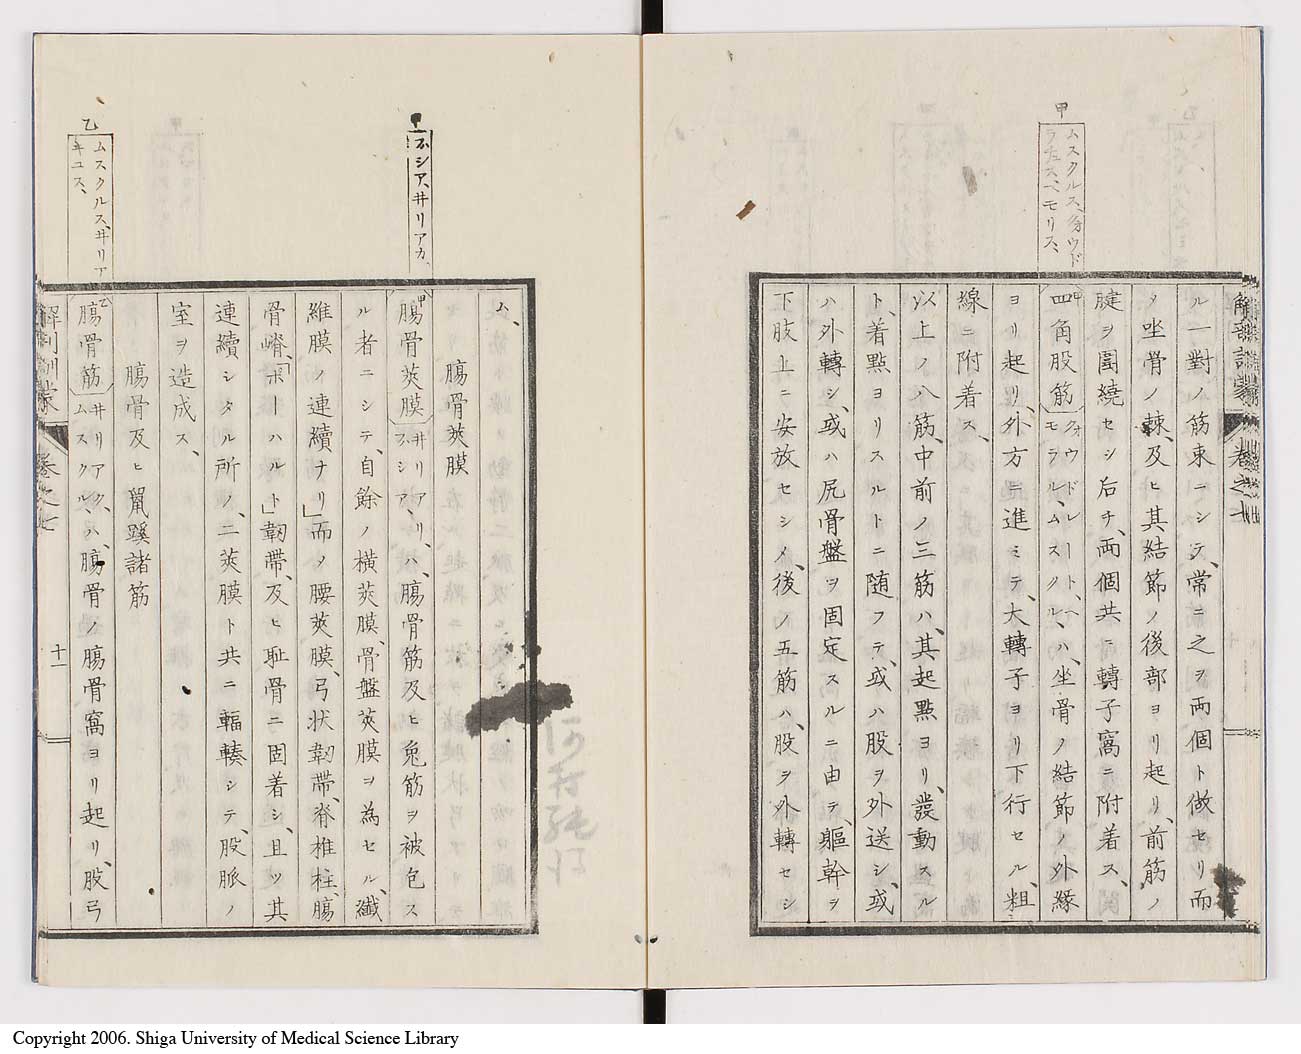 甲
ムスクルス、クウウド
ラチュス、ヘモリス、
ル一對ノ筋束一シテ、常ニ之ヲ兩個ト做セリ而
タ坐骨ノ棘、及ヒ其結節ノ後部ヨリ起リ、前筋ノ
腱ヲ圍繞セシ后チ、兩個共ニ轉子窩ニ附着ス、
甲
四角股筋
クォウドレート、ヘ
モラル、ムスクル、
ハ、坐骨ノ結節ノ外縁
ヨリ起リ、外方ニ進ミテ、大轉子ヨリ下行セル、粗
線ニ附着ス、
以上ノ八筋、中前ノ三筋ハ、其起點ヨリ、發動スル
ト、着點ヨリスルトニ随フテ、或ハ股ヲ外送シ、或
ハ外轉シ、或ハ尻骨盤ヲ固定スルニ由テ、軀幹ヲ
下肢上ニ安放セシメ、後ノ五筋ハ、股ヲ外轉セシ
解剖訓蒙
卷之七
甲
ハシア、ヰリアカ、
乙
ムスクルス、ヰリア
キユス、
ム、
腸骨莢膜
甲
腸骨莢膜
ヰリア、リ
フハシア、
ハ、腸骨筋及ヒ兔筋ヲ被包ス
ル者ニシテ、自餘ノ橫莢膜、骨盤莢膜ヲ為セル、纖
維膜ノ連續ナリ」而ノ腰莢膜、弓状韌帶、脊椎柱、腸
骨嵴、「ポーハルト」韌帶、及ヒ耻骨ニ固着シ、且ツ其
連續シタル所ノ、二莢膜ト共ニ輻輳シテ、股脈ノ
室ヲ造成ス、
腸骨及ヒ鼠蹊諸筋
乙
腸骨筋
ヰリアク、
ムスクル、
ハ、腸骨ノ腸骨窩ヨリ起リ、股弓
解剖訓蒙
卷之七
十一
Copyright 2006. Shiga University of Medical Science Library